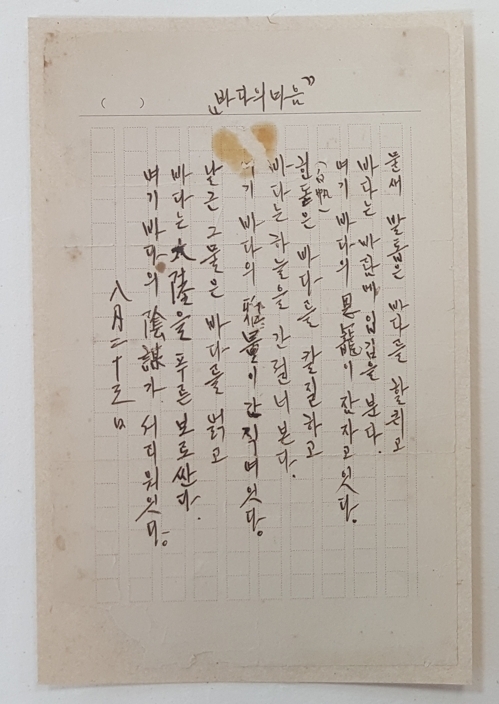 “바다의마음”
( )
물새 발톱은 바다를 할퀴고
바다는 바람에 입김을 분다.
여기 바다의 恩寵이 잠자고잇다.
흰돛(白帆)은 바다를 칼질하고
바다는 하늘을 간질너본다.
여기 바다의 雅量이간직여잇다.
낡근 그물은 바다를 얽고
바다는 大陸을 푸른 보로싼다.
여기 바다의 陰謀가 서리워잇다.
八月二十三日